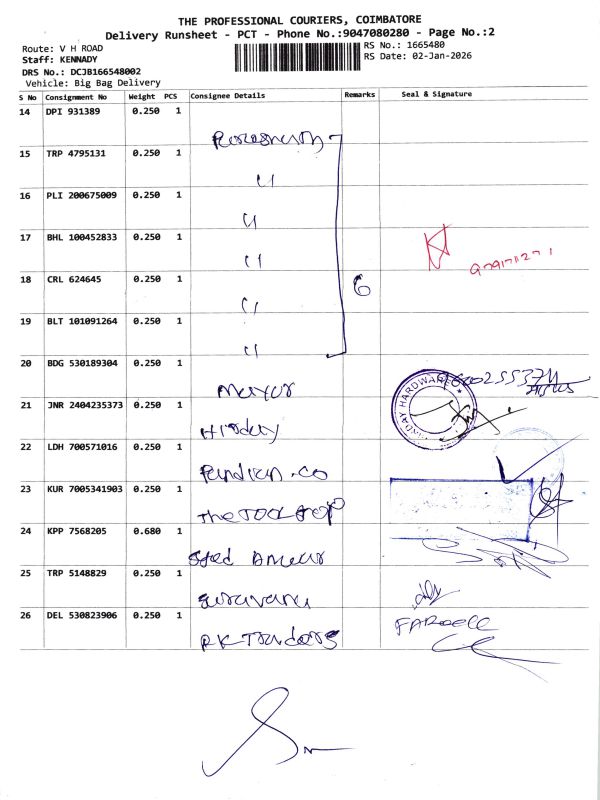 THE PROFESSIONAL COURIERS, COIMBATORE
Delivery Runsheet - PCT - Phone No.:9047080280 - Page No.:2
Route: V H ROAD
RS No.: 1665480
Staff: KENNADY
RS Date: 02-Jan-2026
DRS No.: DCJB166548002
Vehicle: Big Bag Delivery
S No Consignment No Weight PCS Consignee Details Remarks Seal & Signature
14 DPI 931389 0.250 1
15 TRP 4795131 0.250 1
16 PLI 200675009 0.250 1
17 BHL 100452833 0.250 1
18 CRL 624645 0.250 1
6
19 BLT 101091264 0.250 1
20 BDG 530189304 0.250 1
Mayur
21 JNR 2404235373 0.250 1
22 LDH 700571016 0.250 1
Pandian.co
23 KUR 7005341903 0.250 1
The Tool Shop
24 KPP 7568205 0.680 1
Syed Ameer
25 TRP 5148829 0.250 1
26 DEL 530823906 0.250 1
R.K Traders